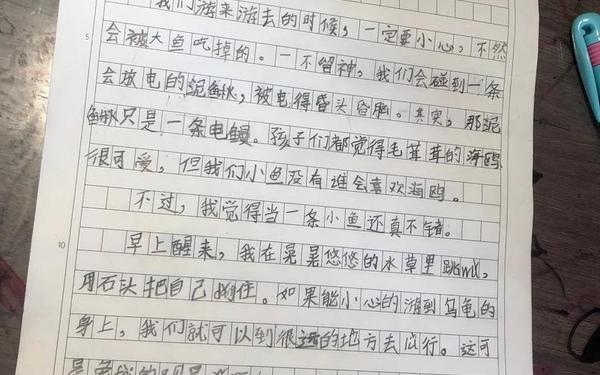 我们游来游去的时候，一定要小心，不然
5
会被大鱼吃掉的。一不留神，我们会碰到一条
会放电的泥鳅，被电得昏头昏脑。其实，那泥
鳅只是一条电鳗。孩子们都觉得毛茸茸的海鸥
很可爱，但我们小鱼没有谁会喜欢海鸥。
不过，我觉得当一条小鱼还真不错。
10
早上醒来，我在晃晃悠悠的水草里跳
用石头把自己 住。如果能小心的游到乌龟的
身上，我们就可以到很远的地方去 行。这可
是